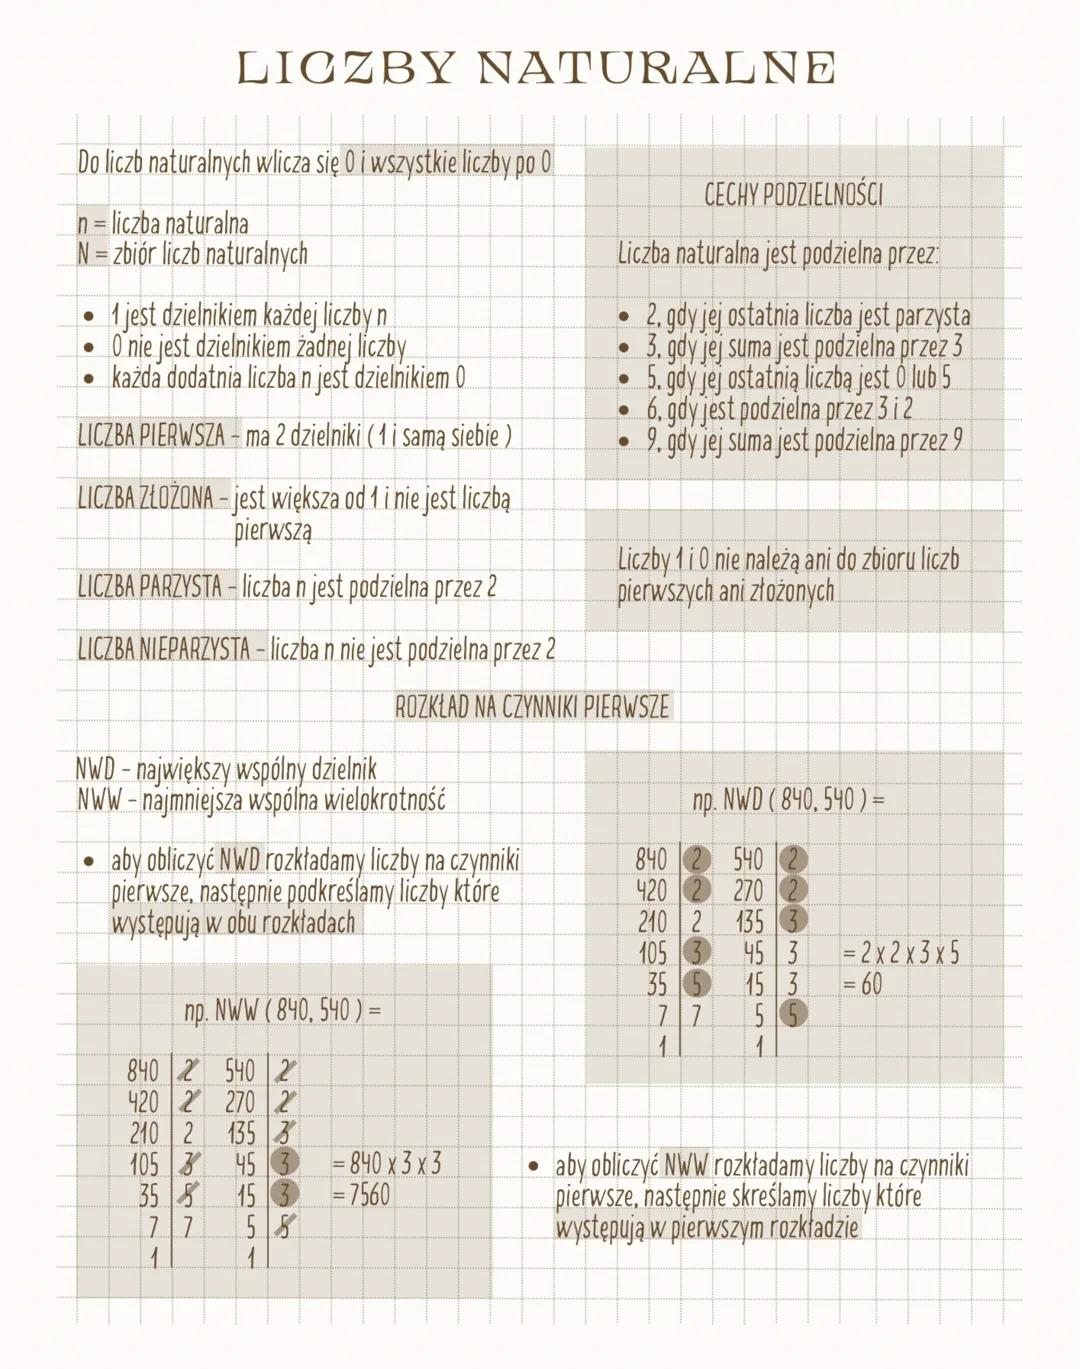 LICZBY NATURALNE
Do liczb naturalnych wlicza się 0 i wszystkie liczby po 0
n = liczba naturalna
N = zbiór liczb naturalnych
• 1 jest dzielnikiem każdej liczby n
• 0 nie jest dzielnikiem żadnej liczby
• każda dodatnia liczba n jest dzielnikiem 0
LICZBA PIERWSZA - ma 2 dzielniki ( 1 i samą siebie )
LICZBA ZŁOŻONA - jest większa od 1 i nie jest liczbą
pierwszą
LICZBA PARZYSTA - liczba n jest podzielna przez 2
LICZBA NIEPARZYSTA - liczba n nie jest podzielna przez 2
CECHY PODZIELNOŚCI
Liczba naturalna jest podzielna przez:
• 2, gdy jej ostatnia liczba jest parzysta
• 3, gdy jej suma jest podzielna przez 3
• 5, gdy jej ostatnią liczbą jest 0 lub 5
• 6, gdy jest podzielna przez 3 i 2
• 9, gdy jej suma jest podzielna przez 9
Liczby 1 i 0 nie należą ani do zbioru liczb
pierwszych ani złożonych
ROZKŁAD NA CZYNNIKI PIERWSZE
NWD - największy wspólny dzielnik
NWW - najmniejsza wspólna wielokrotność
• aby obliczyć NWD rozkładamy liczby na czynniki
pierwsze, następnie podkreślamy liczby które
występują w obu rozkładach
np. NWD ( 840, 540 ) =
840 2 540 2
420 2 270 2
210 2 135 3
105 3 45 3 = 2 x 2 x 3 x 5
35 5 15 3 = 60
7 7 5 5
1 1
np. NWW ( 840, 540 ) =
840 2 540 2
420 2 270 2
210 2 135 3
105 3 45 3 = 840 x 3 x 3
35 5 15 3 = 7560
7 7 5 5
1 1
• aby obliczyć NWW rozkładamy liczby na czynniki
pierwsze, następnie skreślamy liczby które
występują w pierwszym rozkładzie